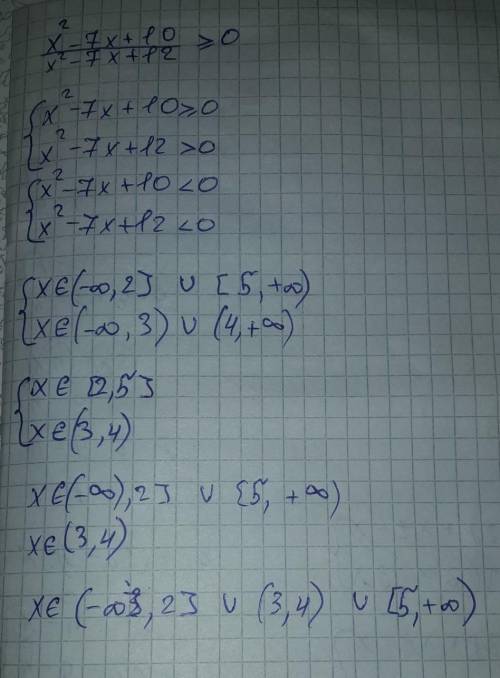 x² - 7x + 10
x² - 7x + 12 ≥ 0
{ x² - 7x + 10 ≥ 0
{ x² - 7x + 12 > 0
{ x² - 7x + 10 < 0
{ x² - 7x + 12 < 0
{ x ∈ (-∞, 2] ∪ [5, +∞)
{ x ∈ (-∞, 3) ∪ (4, +∞)
{ x ∈ [2, 5]
{ x ∈ (3, 4)
x ∈ (-∞), 2] ∪ [5, +∞)
x ∈ (3, 4)
x ∈ (-∞, 2] ∪ (3, 4) ∪ [5, +∞)